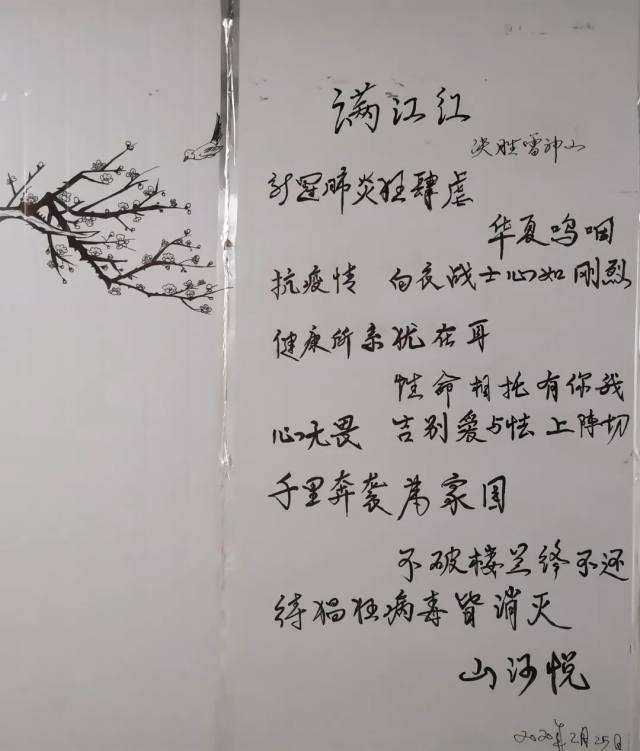 满江红
决胜雷神山
新冠肺炎狂肆虐
华夏呜咽
抗疫情 白衣战士心如刚烈
健康所系犹在耳
性命相托有你我
心无畏 告别爱与怯上阵切
千里奔袭为家国
不破楼兰终不还
待猖狂病毒皆消灭
山河悦
2020年2月25日